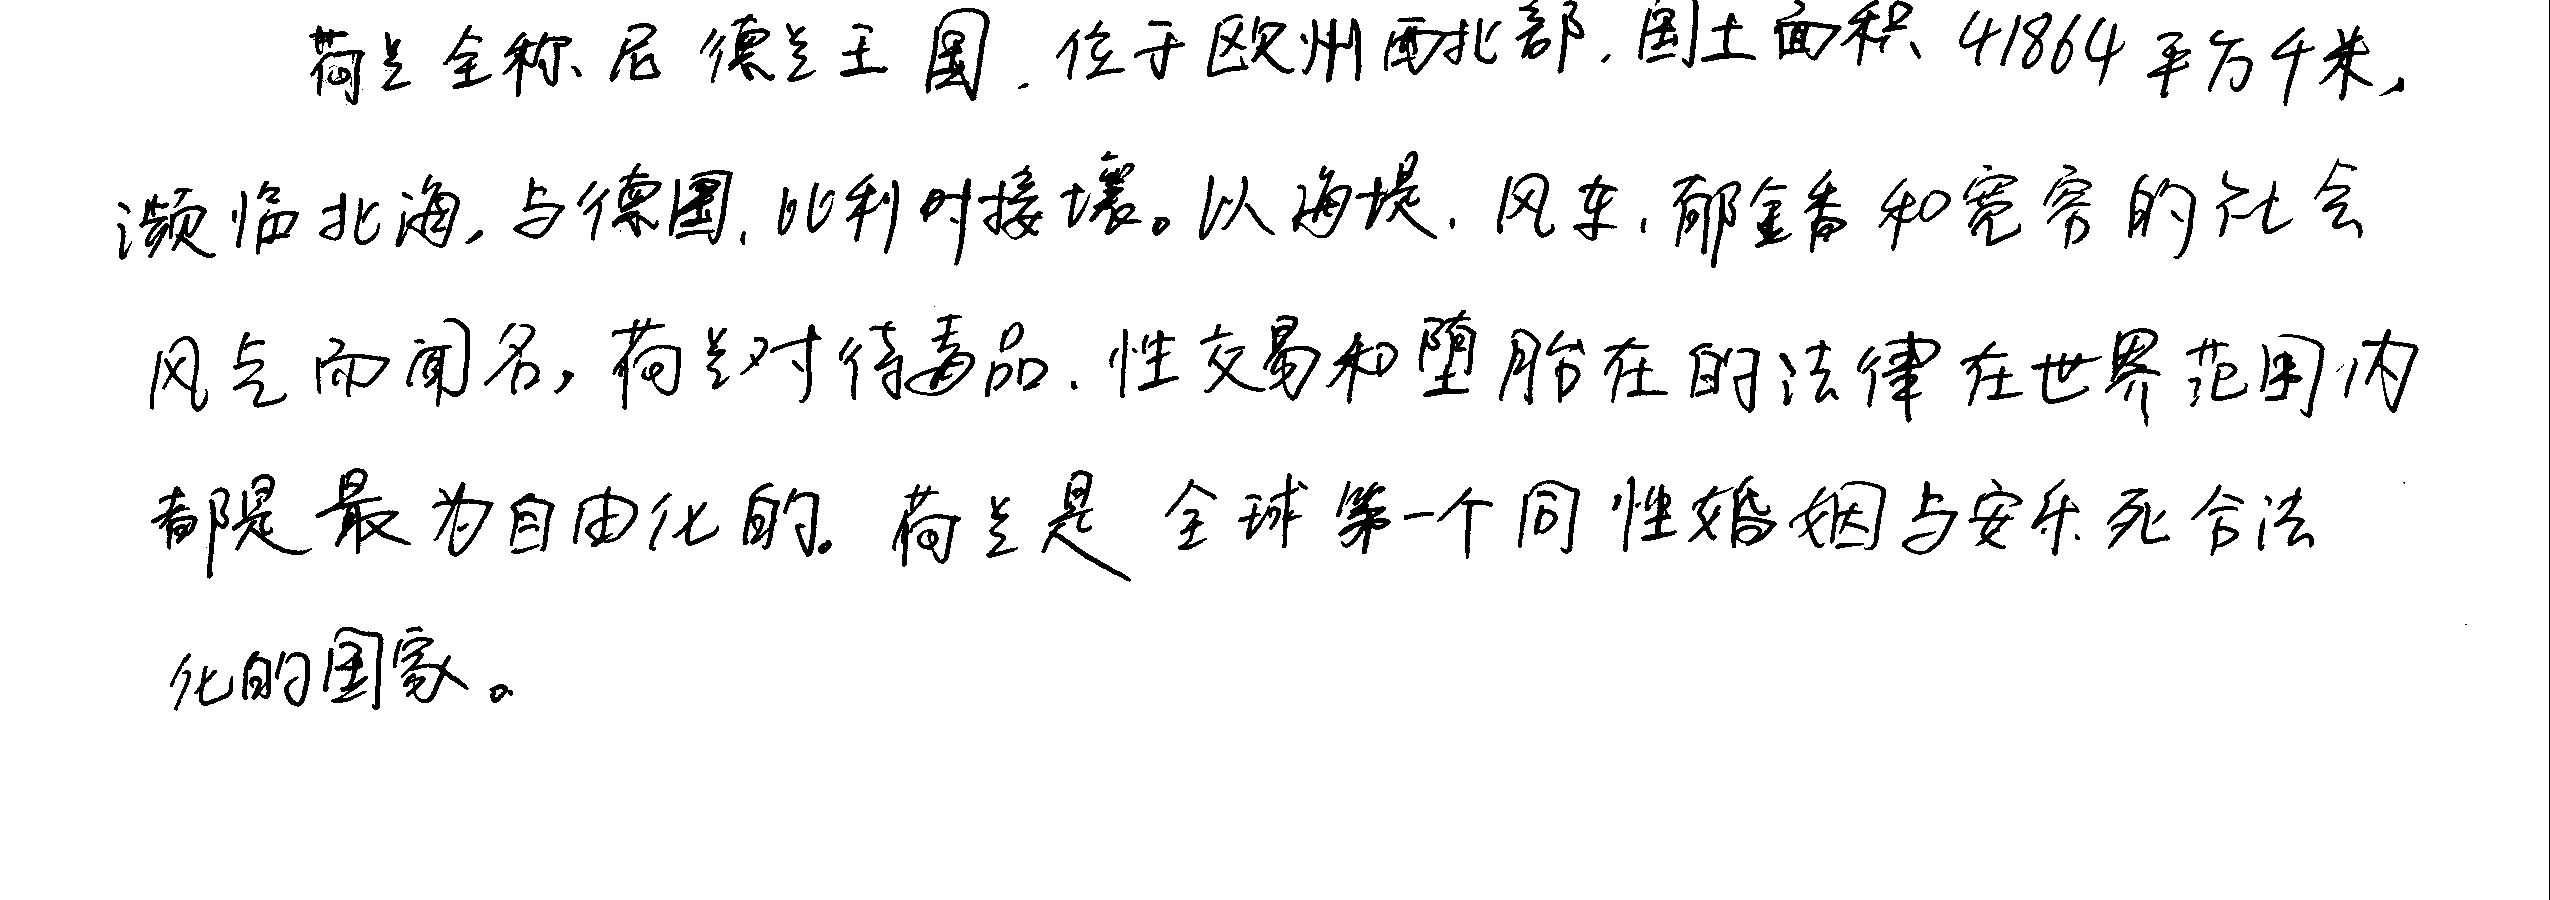 荷兰全称尼德兰王国，位于欧州西北部，国土面积41864平方千米，
濒临北海，与德国、比利时接壤。以海堤、风车、郁金香和宽容的社会
风气而闻名，荷兰对待毒品、性交易和堕胎在的法律在世界范围内
都是最为自由化的。荷兰是全球第一个同性婚姻与安乐死合法
化的国家。